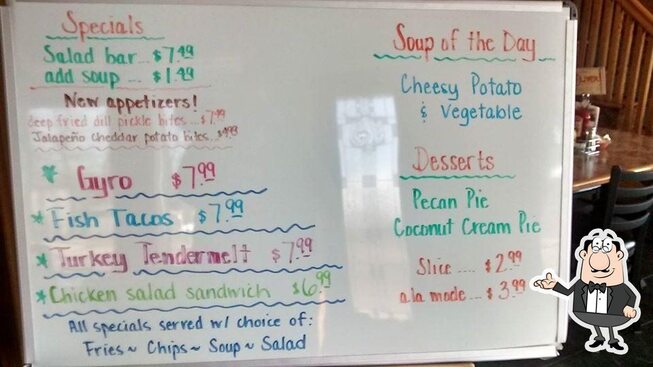 Specials
Salad bar... $7.99
add soup... $1.49
New appetizers!
deep fried dill pickle bites...$7.99
Jalapeño cheddar potato bites...
* Gyro $7.99
* Fish Tacos $7.99
* Turkey Tendermelt $7.99
* Chicken salad sandwich $6.99
All specials served w/ choice of:
Fries ~ Chips ~ Soup ~ Salad
Soup of the Day
Cheesy Potato
& Vegetable
Desserts
Pecan Pie
Coconut Cream Pie
Slice .... $2.99
a la mode... $3.99